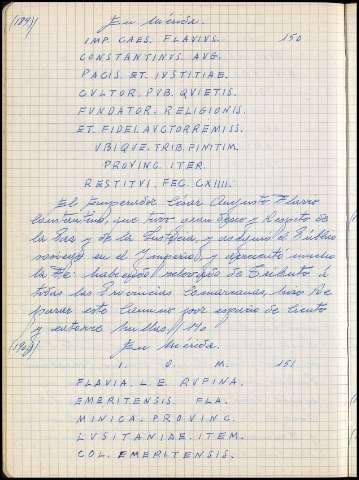 (1894) En Mérida.
IMP. CAES. FLAVIUS. 150
CONSTANTINUS AUG.
PACIS. ET. IVSTITIAE.
CVLTOR. PVB. QVIETIS.
FUNDATOR. RELIGIONIS.
ET. FIDEI. AVCTOR REMISS.
VBIQUE. TRIB. FINITIM.
PROVINC. ITER.
RESTITVI. FEC. CXIIII.
El Emperador César Augusto Flavio
Constantino, que tuvo gran deseo y Respeto de
la Paz y de la Justicia, y el Público
sosiego en el Imperio, y mucho
la Fe: habiendo de Tributo á
todas las Provincias Comarcanas, hizo Re-
parar este Camino por espacio de Ciento
y catorce millas
En Mérida.
I. O. M. 151
FLAVIA. L. E. RVFINA.
EMERITENSIS. FLA.
MINICA. PROVINC.
LVSITANIAE. ITEM.
COL. EMERITENSIS.